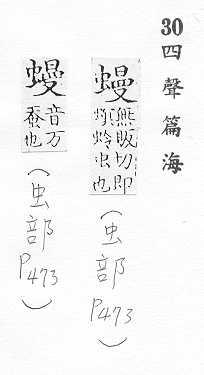 30 四聲篇海
蟃 無販切即螟蛉虫也（虫部P473）
蟃 音万蚕也（虫部P473）